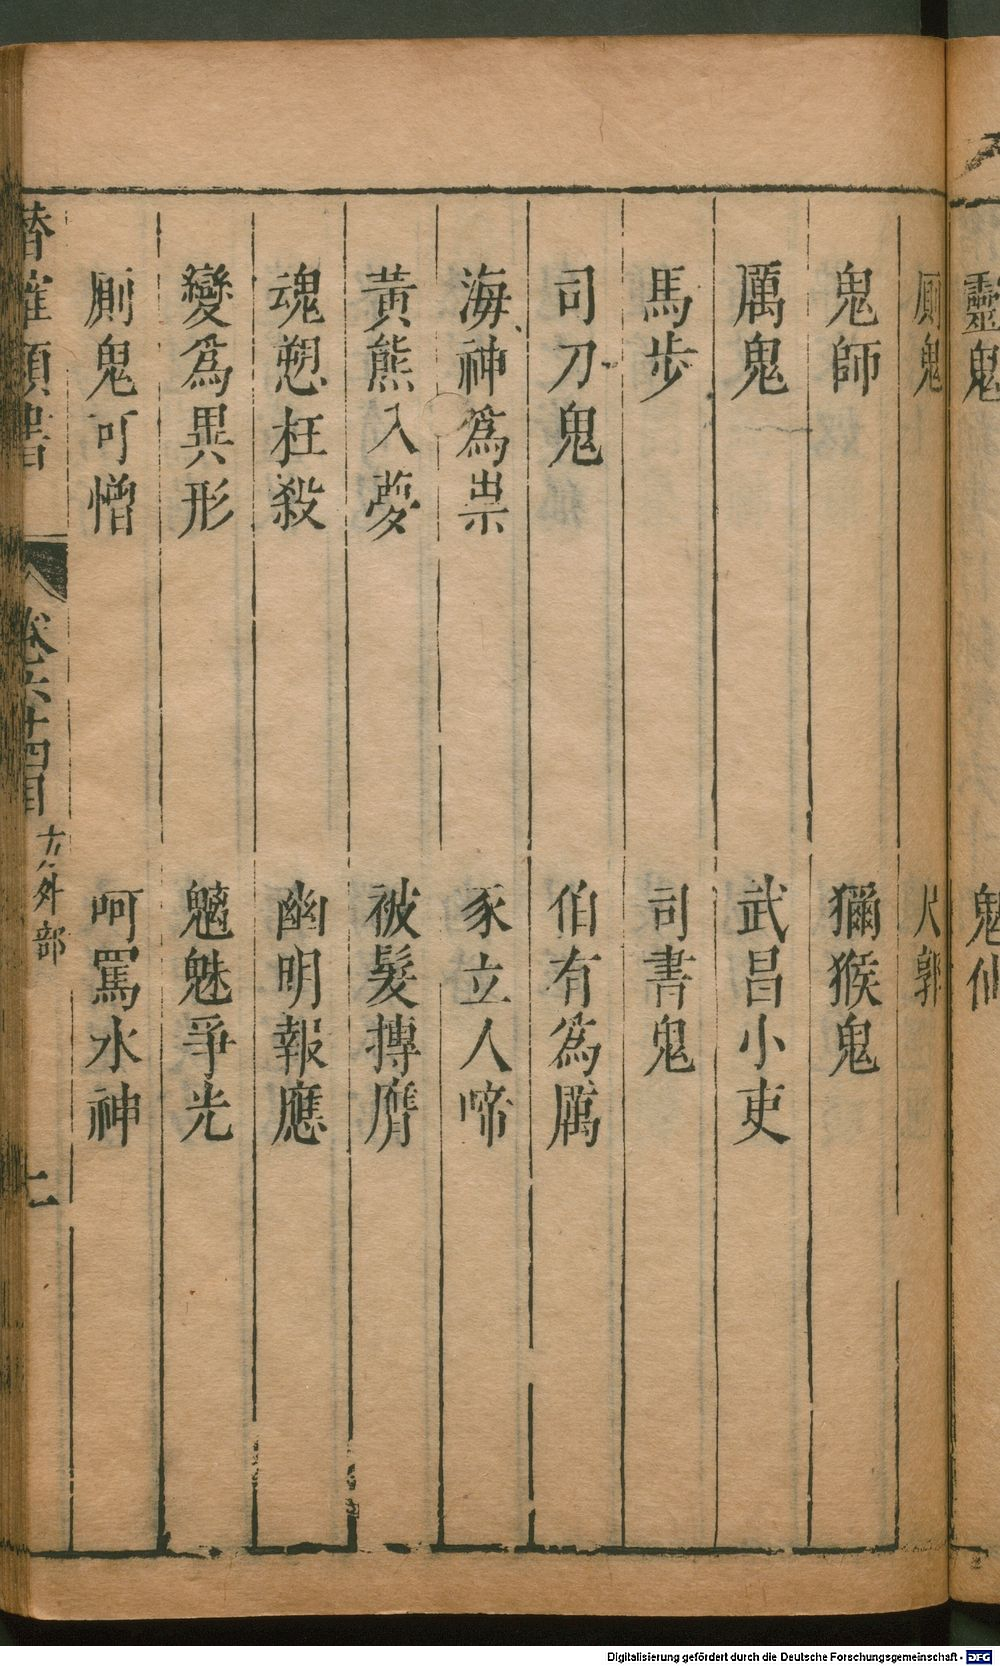 靈鬼 鬼仙
廁鬼 尺郭
鬼師 獼猴鬼
厲鬼 武昌小吏
馬步 司書鬼
司刀鬼 伯有為厲
海神為祟 豕立人啼
黃熊入夢 被髮摶膺
魂愬枉殺 幽明報應
變為異形 魑魅爭光
廁鬼可憎 呵罵水神
潛確類書 卷六十四目 方外部 二
Digitalisierung gefördert durch die Deutsche Forschungsgemeinschaft - DFG